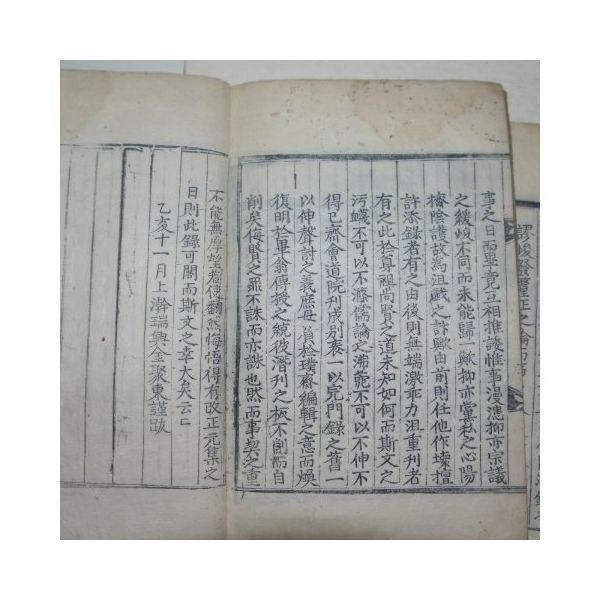 事之日而畢竟互相推諉惟事漫漶抑亦宗議
之緩峻不同而未能歸一歟抑亦黨私之心陽
擠陰護故爲沮戱之計歟由前則任他作壞壇
許添錄者有之由後則無端激乖力沮重刊者
有之此於尊祖尚賢之道未知如何而斯文之
污衊不可以不滌儒論之沸鬱不可以不伸不
得已齊會道院刊成別表一以完門錄之舊一
以伸聲討之義庶毋負於璞齋編輯之意而煥
復明於畢翁傳授之統彼潛刊之板不削而自
削矣侮賢之罪不誅而亦誅也然而事契之重
不能無厚望者使翻然悔悟得有改正元集之
日則此錄可閣而斯文之幸大矣云亡
乙亥十一月上澣瑞興金聚東謹跋